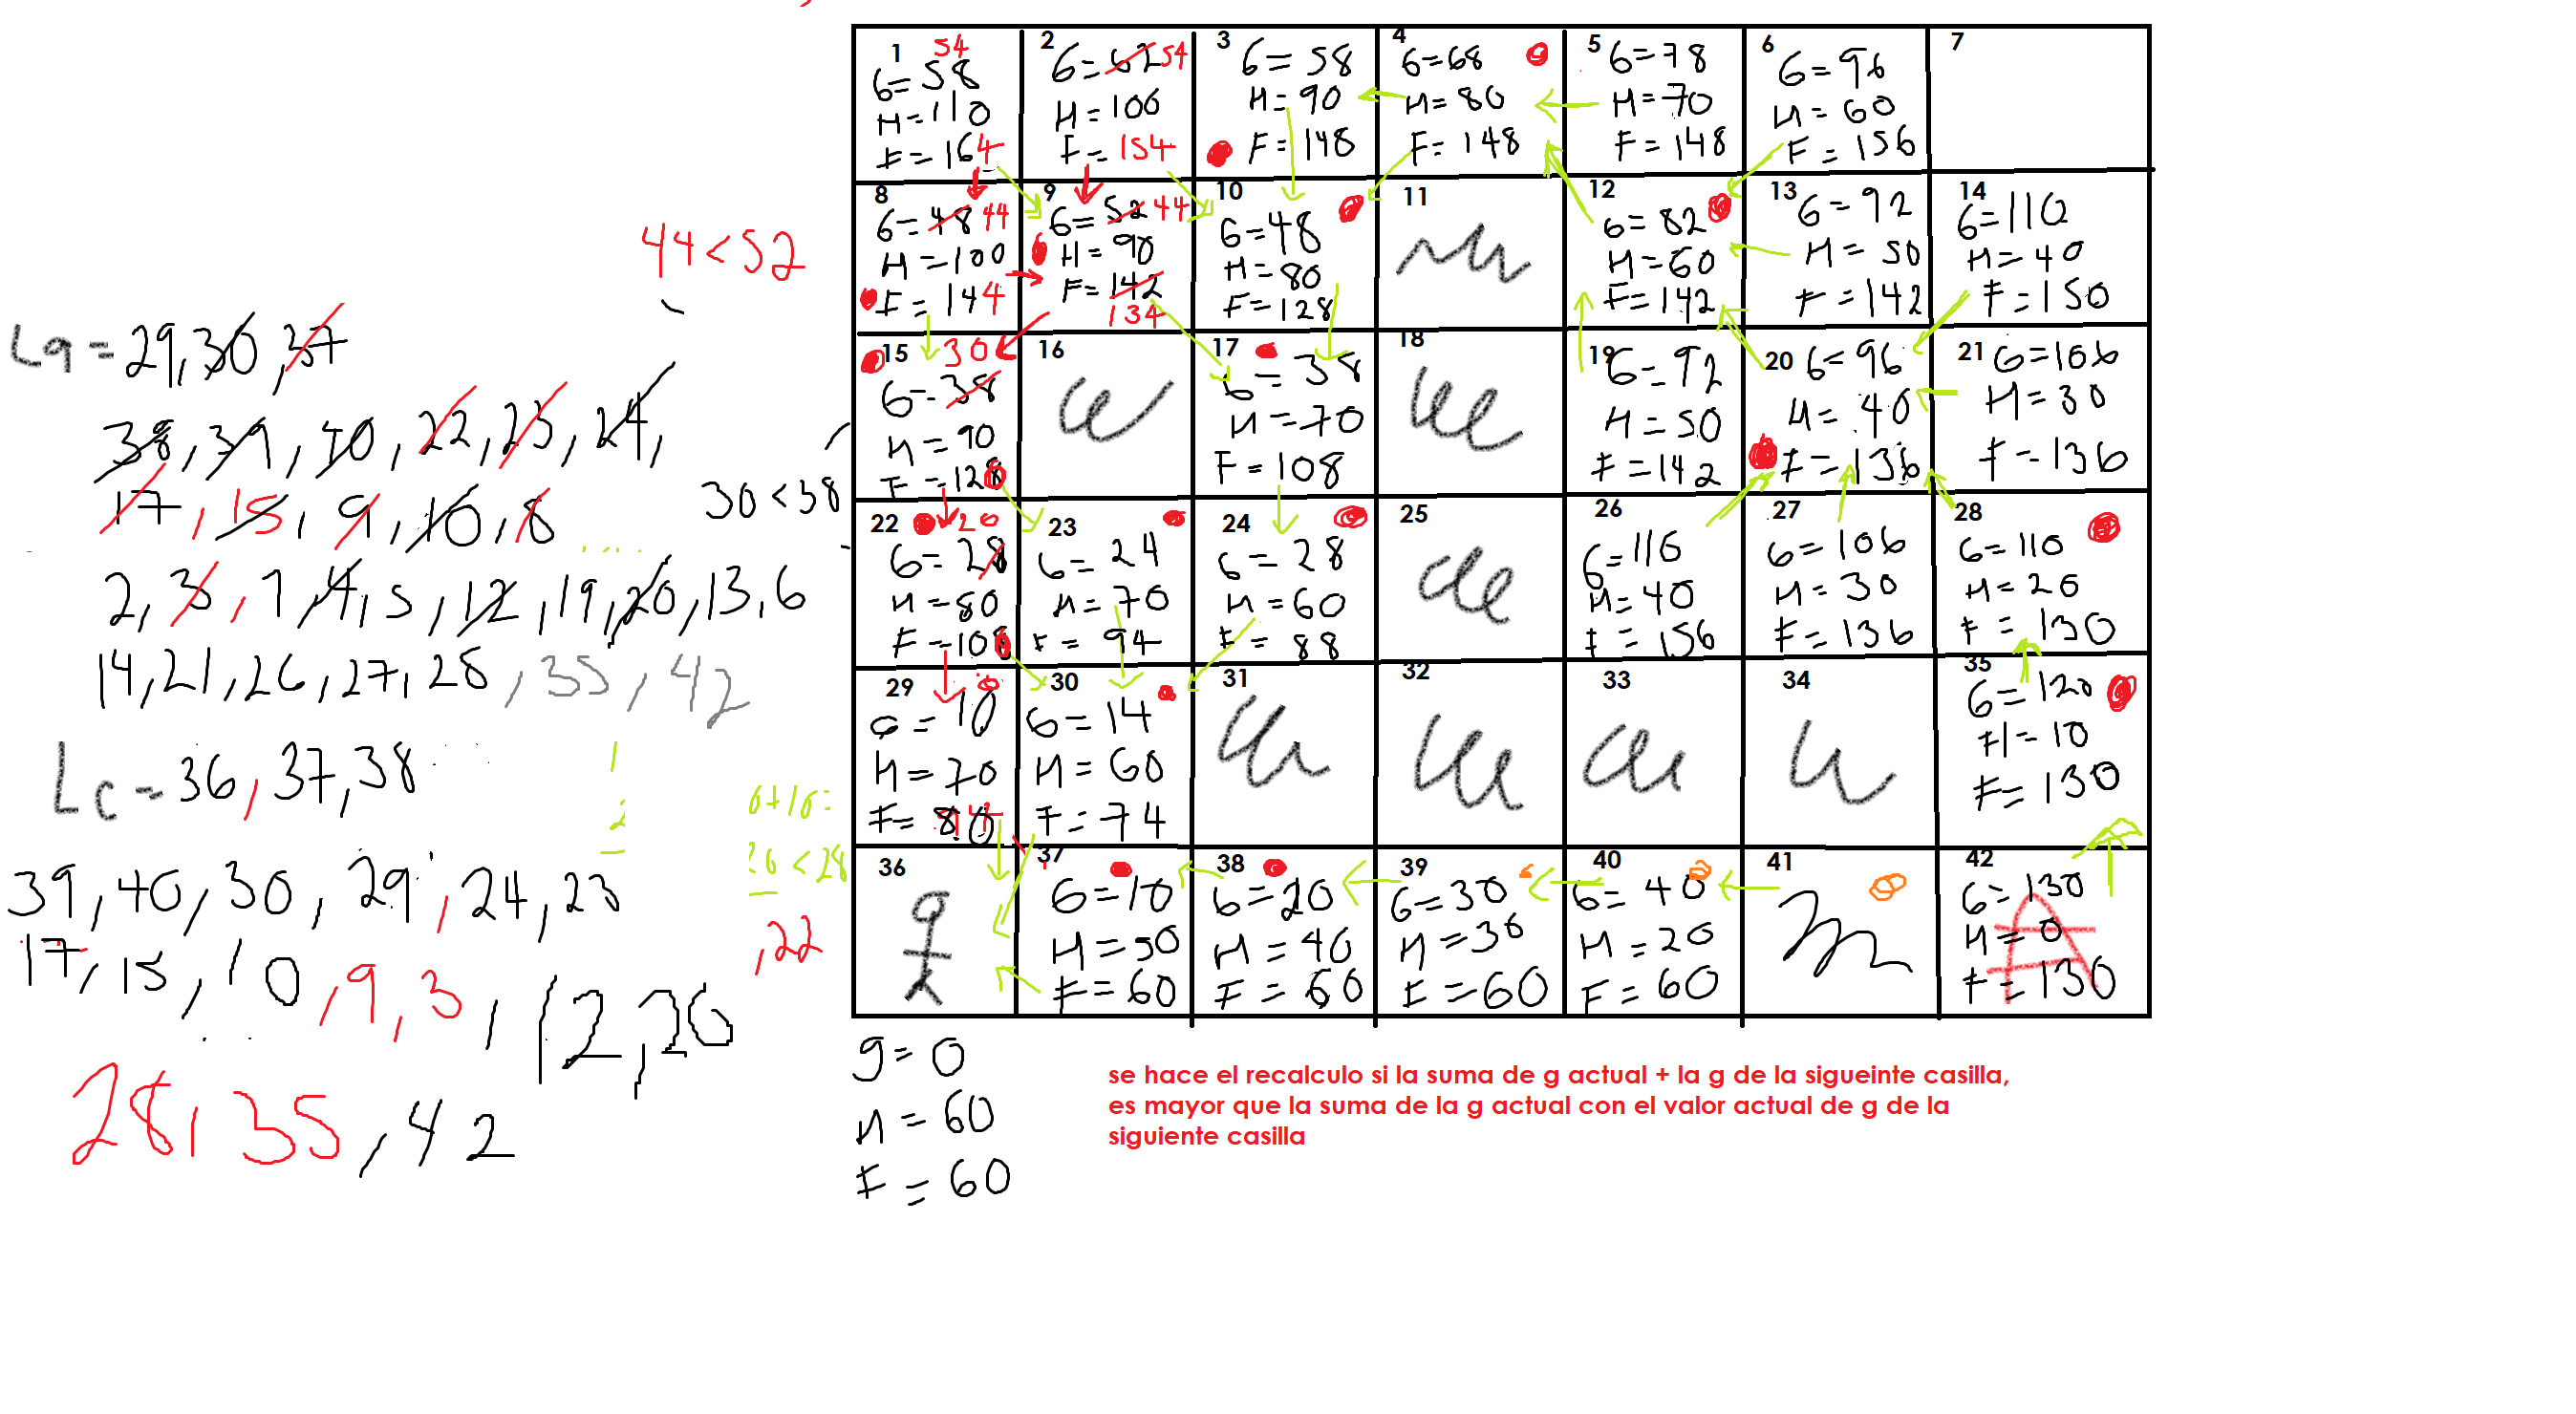 La = 29, 30, 37
38, 39, 40, 22, 23, 24,
17, 15, 9, 10, 8
2, 3, 1, 4, 5, 12, 19, 20, 13, 6
14, 21, 26, 27, 28, 35, 42
Lc = 36, 37, 38
39, 40, 30, 29, 24, 23
17, 15, 10, 9, 3, 12, 20
28, 35, 42
44 < 52
30 < 38
26 < 28
, 22
1 54
G = 58
H = 110
F = 164
2
G = 62 54
H = 100
F = 154
3
G = 58
H = 90
F = 148
4
G = 68
H = 80
F = 148
5
G = 78
H = 70
F = 148
6
G = 96
H = 60
F = 156
7
8
G = 48 44
H = 100
F = 144
9
G = 52 44
H = 90
F = 142
134
10
G = 48
H = 80
F = 128
11
12
G = 82
H = 60
F = 142
13
G = 92
H = 50
F = 142
14
G = 110
H = 40
F = 150
15 30
G = 38
H = 90
F = 128
16
17
G = 38
H = 70
F = 108
18
19
G = 92
H = 50
F = 142
20
G = 96
H = 40
F = 136
21
G = 106
H = 30
F = 136
22 20
G = 28
H = 80
F = 108
23
G = 24
H = 70
F = 94
24
G = 28
H = 60
F = 88
25
26
G = 116
H = 40
F = 156
27
G = 106
H = 30
F = 136
28
G = 110
H = 20
F = 130
29
G = 10
H = 70
F = 80
30
G = 14
H = 60
F = 74
31
32
33
34
35
G = 120
H = 10
F = 130
36
37
G = 10
H = 50
F = 60
38
G = 20
H = 40
F = 60
39
G = 30
H = 30
F = 60
40
G = 40
H = 20
F = 60
41
42
G = 130
H = 0
F = 130
g = 0
H = 60
F = 60
se hace el recalculo si la suma de g actual + la g de la sigueinte casilla,
es mayor que la suma de la g actual con el valor actual de g de la
siguiente casilla